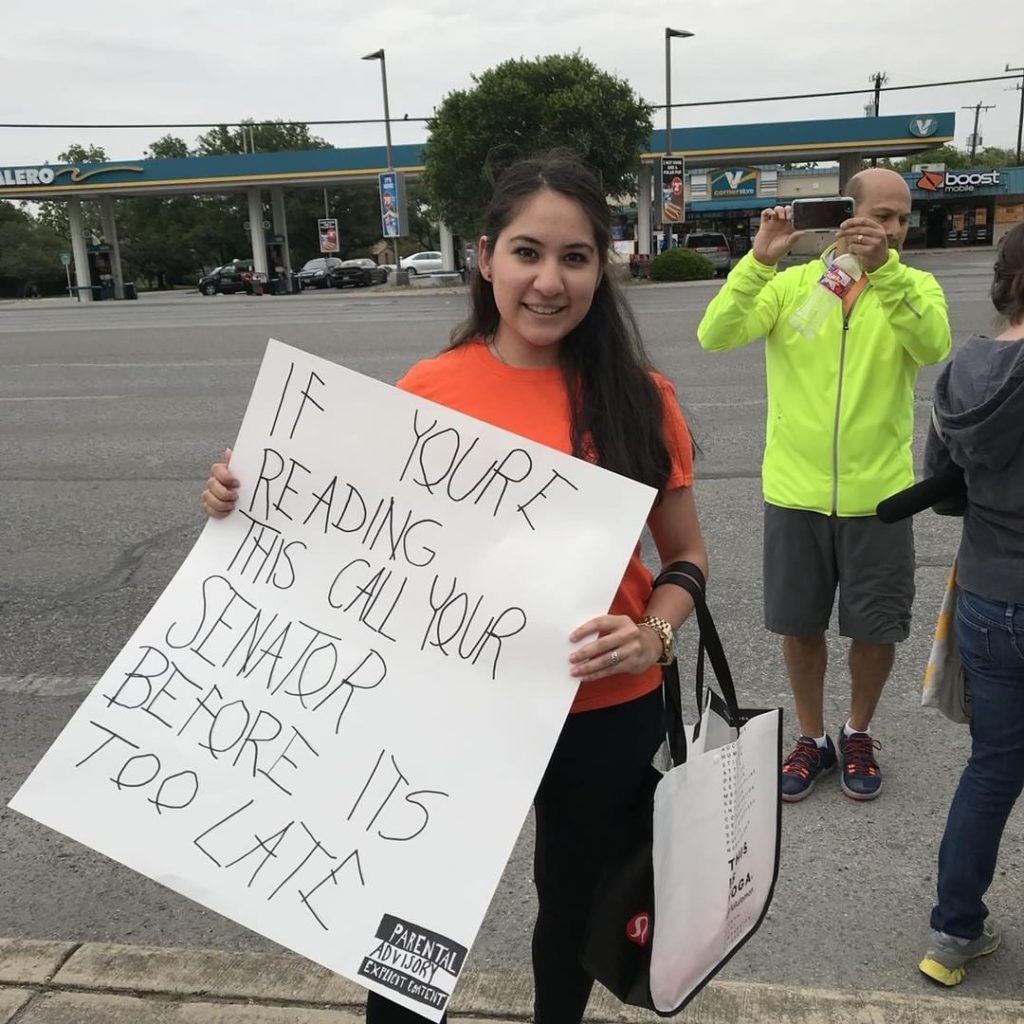 ALERO
corner store
boost
mobile
IF YOURE
READING
THIS CALL YOUR
SENATOR
BEFORE ITS
TOO LATE
PARENTAL
ADVISORY
EXPLICIT CONTENT
THIS
IS
YOGA.
lululemon